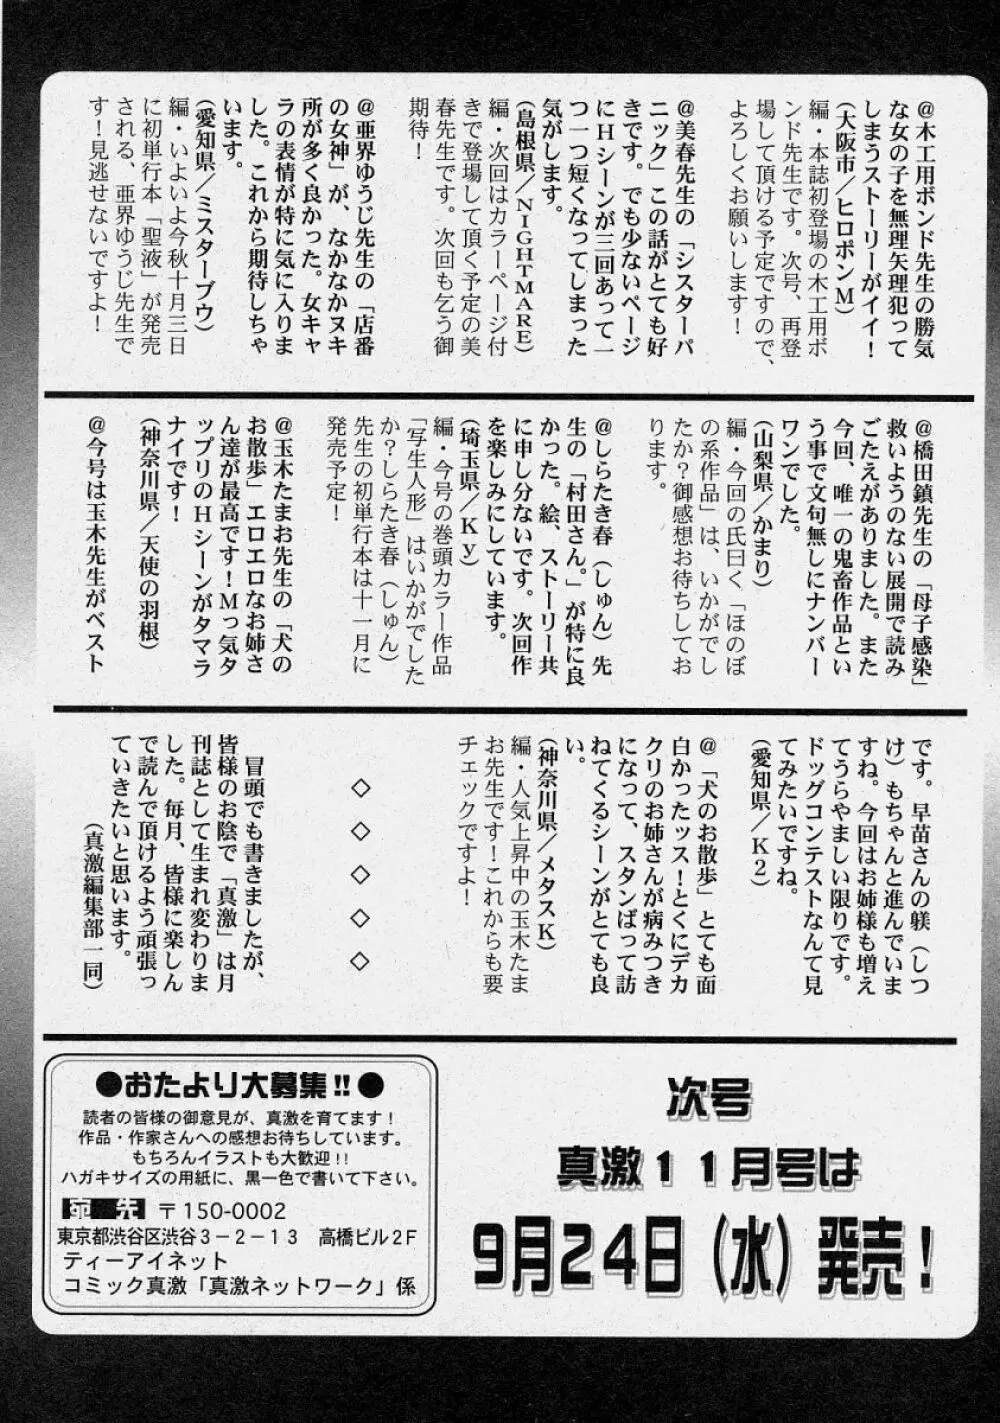 ＠木工用ボンド先生の勝気
な女の子を無理矢理犯って
しまうストーリーがイイ！
（大阪市／ヒロポンＭ）
編・本誌初登場の木工用ボ
ンド先生です。次号、再登
場して頂ける予定ですので、
よろしくお願いします！
＠美春先生の「シスターパ
ニック」この話がとても好
きです。でも少ないページ
にＨシーンが三回あって一
つ一つ短くなってしまった
気がします。
（島根県／ＮＩＧＨＴＭＡＲＥ）
編・次回はカラーページ付
きで登場して頂く予定の美
春先生です。次回も乞う御
期待！
＠亜界ゆうじ先生の「店番
の女神」が、なかなかヌキ
所が多く良かった。女キャ
ラの表情が特に気に入りま
した。これから期待しちゃ
います。
（愛知県／ミスターブウ）
編・いよいよ今秋十月三日
に初単行本「聖液」が発売
される、亜界ゆうじ先生で
す！見逃せないですよ！
＠橋田鎮先生の「母子感染」
救いようのない展開で読み
ごたえがありました。また
今回、唯一の鬼畜作品とい
う事で文句無しにナンバー
ワンでした。
（山梨県／かまり）
編・今回の氏曰く「ほのぼ
の系作品」は、いかがでし
たか？御感想お待ちしてお
ります。
＠しらたき春（しゅん）先
生の「村田さん。」が特に良
かった。絵、ストーリー共
に申し分ないです。次回作
を楽しみにしています。
（埼玉県／Ｋｙ）
編・今号の巻頭カラー作品
「写生人形」はいかがでした
か？しらたき春（しゅん）
先生の初単行本は十一月に
発売予定！
＠玉木たまお先生の「犬の
お散歩」エロエロなお姉さ
ん達が最高です！Ｍっ気タ
ップリのＨシーンがタマラ
ナイです！
（神奈川県／天使の羽根）
＠今号は玉木先生がベスト
です。早苗さんの躾（しつ
け）もちゃんと進んでいま
すね。今回はお姉様も増え
てうらやましい限りです。
ドッグコンテストなんて見
てみたいですね。
（愛知県／Ｋ２）
＠「犬のお散歩」とても面
白かったッス！とくにデカ
クリのお姉さんが病みつき
になって、スタンばって訪
ねてくるシーンがとても良
い。
（神奈川県／メタスＫ）
編・人気上昇中の玉木たま
お先生です！これからも要
チェックですよ！
◇◇◇◇◇
冒頭でも書きましたが、
皆様のお陰で「真激」は月
刊誌として生まれ変わりま
した。毎月、皆様に楽しん
で読んで頂けるよう頑張っ
ていきたいと思います。
（真激編集部一同）
次号
真激１１月号は
9月24日（水）発売！
●おたより大募集!!●
読者の皆様の御意見が、真激を育てます！
作品・作家さんへの感想お待ちしています。
もちろんイラストも大歓迎!!
ハガキサイズの用紙に、黒一色で書いて下さい。
宛先 〒150-0002
東京都渋谷区渋谷３－２－１３　高橋ビル２Ｆ
ティーアイネット
コミック真激「真激ネットワーク」係